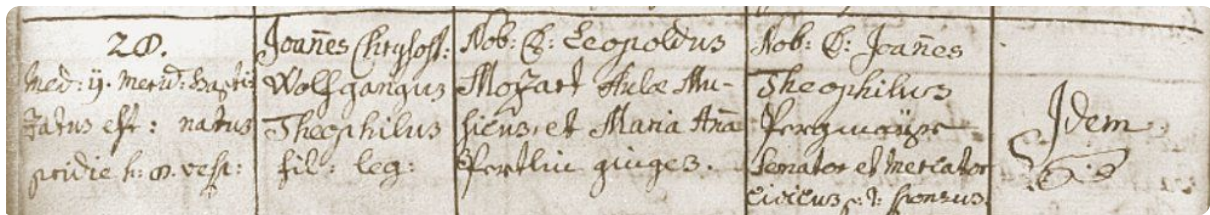 28.
med: ij. merid: bapti:
zatus est : natus
pridie h: 8. vesp:
Joañes Chrysost:
Wolfgangus
Theophilus
fil: leg:
Nob: D: Leopoldus
Mozart Aulæ Mu-
sicus, et Maria Aña
Pertlin giuges.
Nob: D: Joañes
Theophilus
Pergmaÿr
Senator et Mercator
civicus p: t: sponsus.
Idem